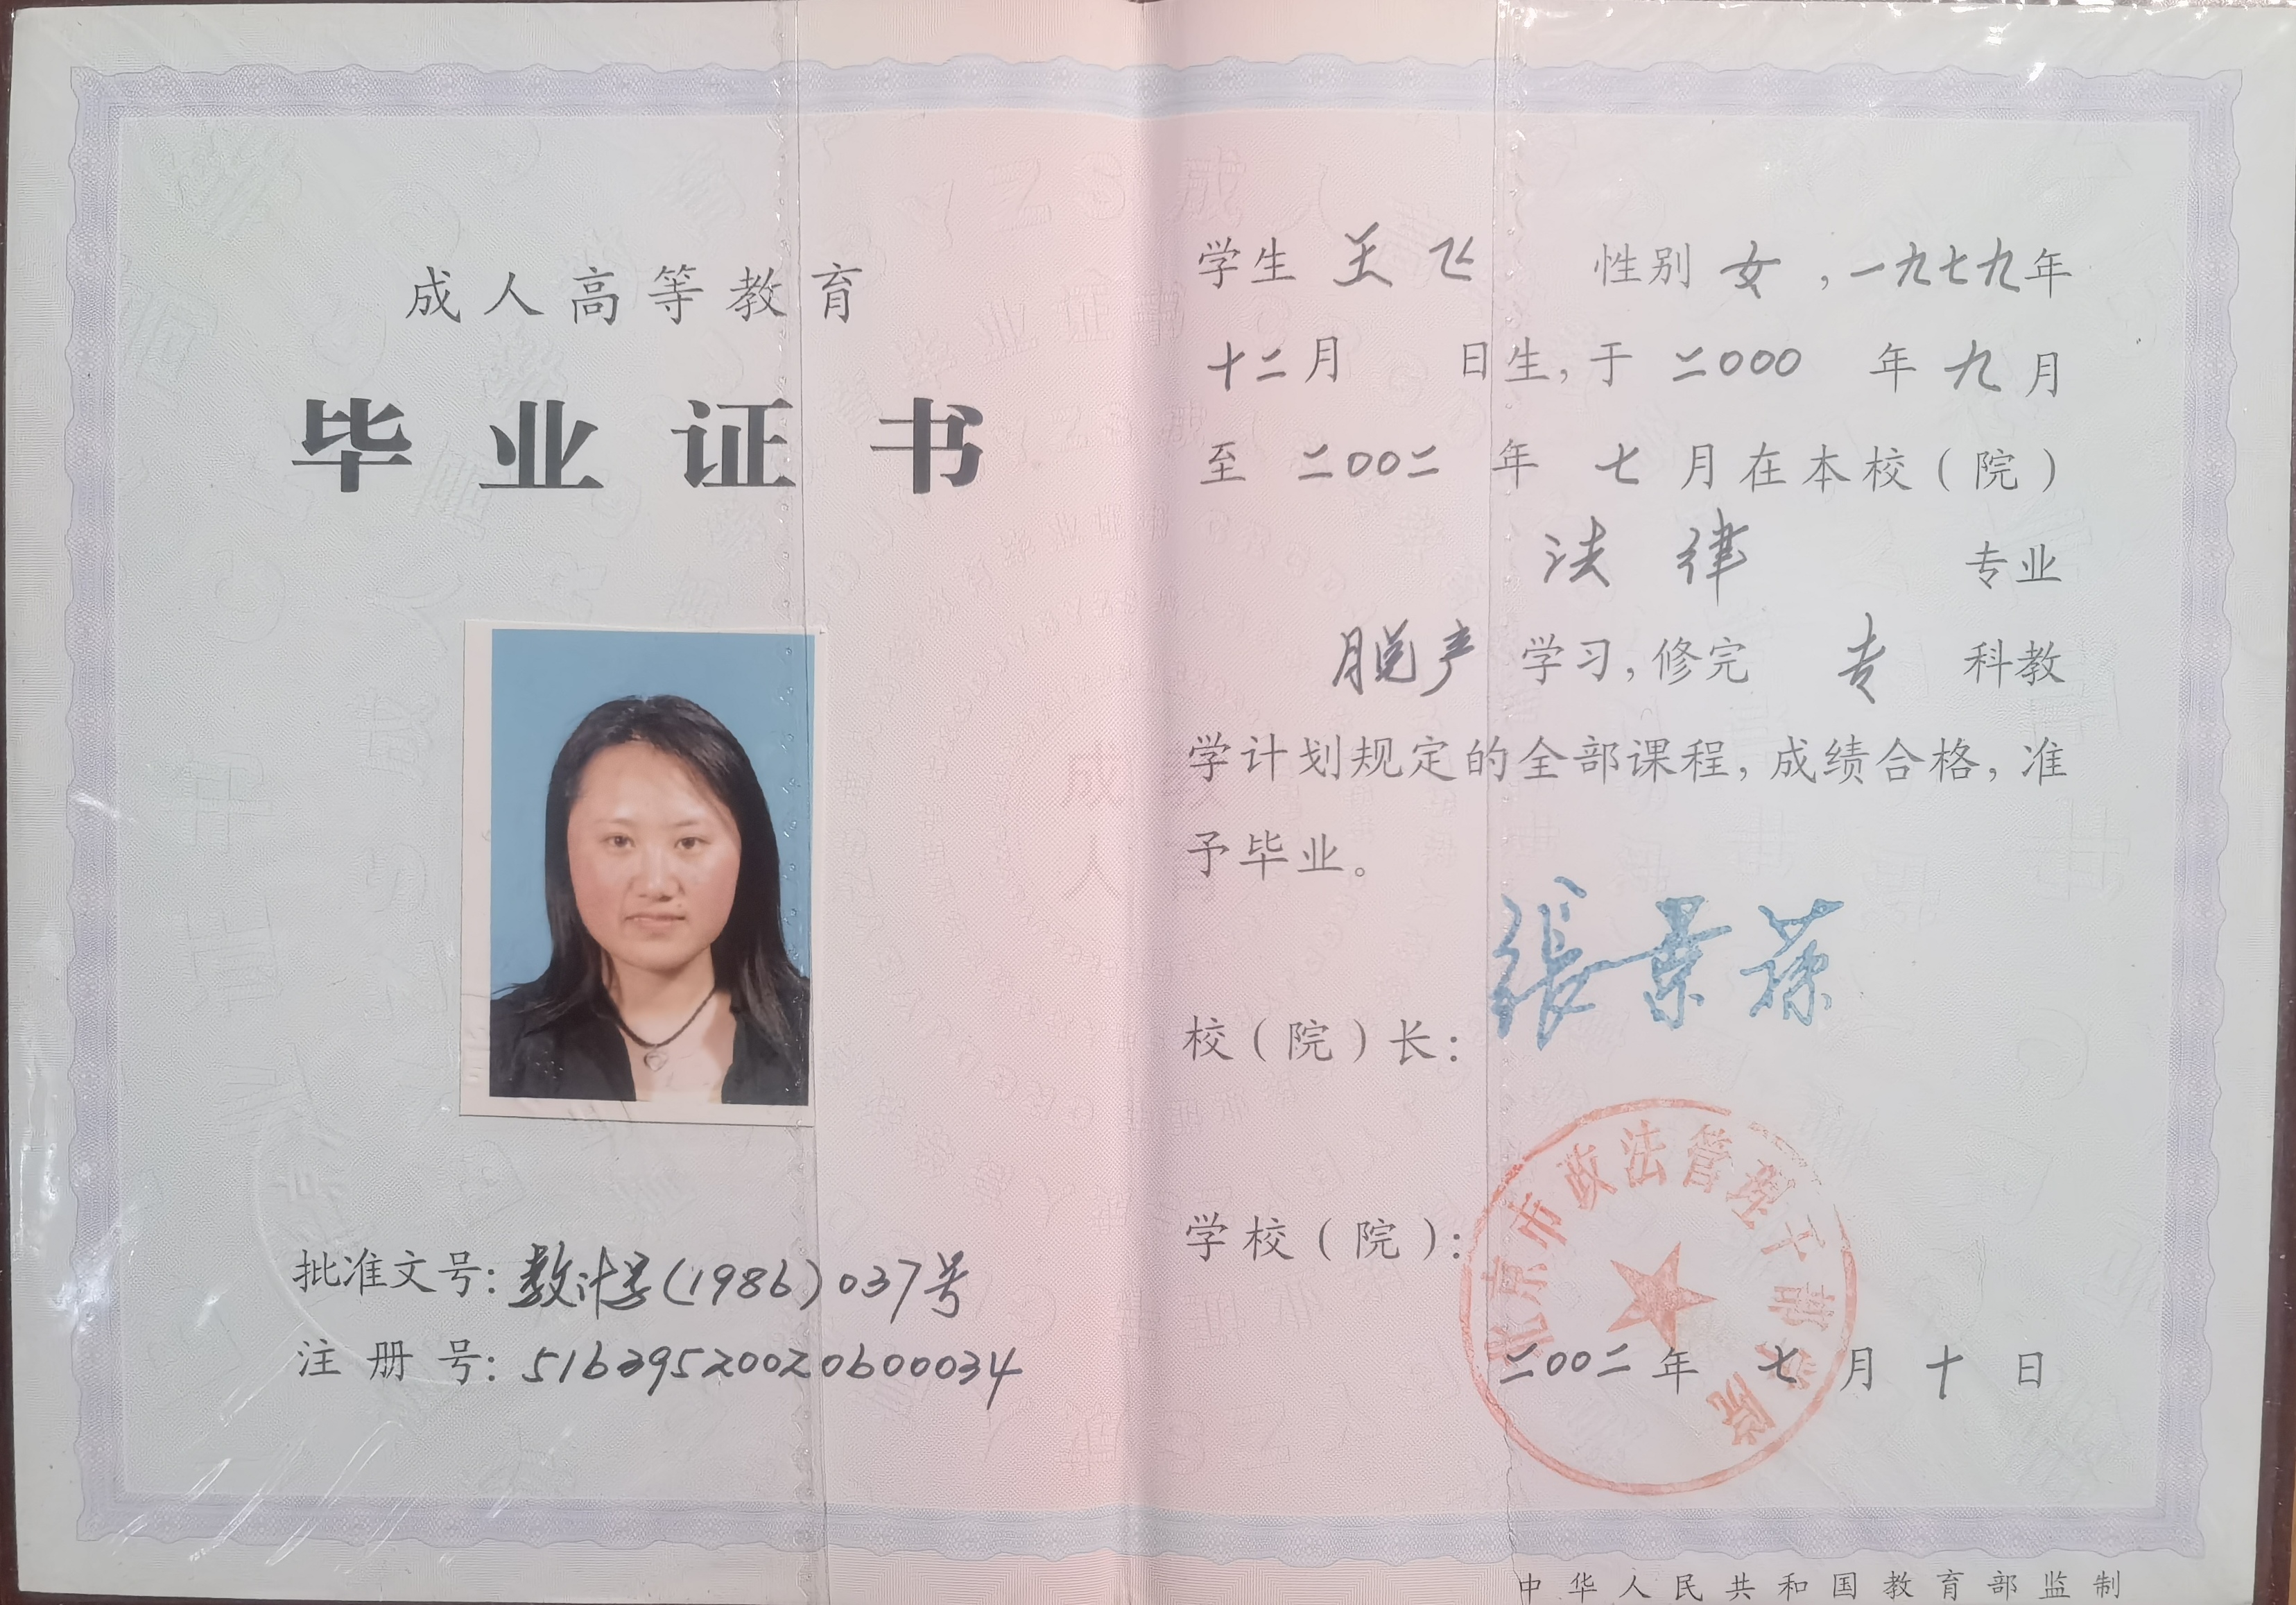 成人高等教育
毕业证书
批准文号：教计字（1986）037号
注册号：51639520020600034
学生 王飞 性别 女，一九七九年
十二月 日生，于 二〇〇〇 年 九 月
至 二〇〇二 年 七 月在本校（院）
法律 专业
脱产 学习，修完 专 科教
学计划规定的全部课程，成绩合格，准
予毕业。
校（院）长：張景荪
学校（院）：
北京市政法管理干部学院
二〇〇二 年 七 月 十 日
中华人民共和国教育部监制